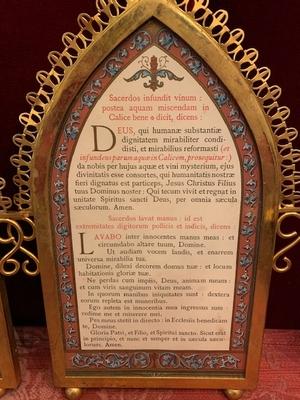 Sacerdos infundit vinum :
postea aquam miscendam in
Calice bene ✠ dicit, dicens :
DEUS, qui humanæ substantiæ
dignitatem mirabiliter condi-
disti, et mirabilius reformasti (et
infundens parum aquæ in Calicem, prosequitur :)
da nobis per hujus aquæ et vini mysterium, ejus
divinitatis esse consortes, qui humanitatis nostræ
fieri dignatus est particeps, Jesus Christus Filius
tuus Dominus noster : Qui tecum vivit et regnat in
unitate Spiritus sancti Deus, per omnia sæcula
sæculorum. Amen.
Sacerdos lavat manus : id est
extremitates digitorum pollicis et indicis, dicens :
LAVABO inter innocentes manus meas : et
circumdabo altare tuum, Domine.
Ut audiam vocem laudis, et enarrem
universa mirabilia tua.
Domine, dilexi decorem domus tuæ : et locum
habitationis gloriæ tuæ.
Ne perdas cum impiis, Deus, animam meam :
et cum viris sanguinum vitam meam.
In quorum manibus iniquitates sunt : dextera
eorum repleta est muneribus.
Ego autem in innocentia mea ingressus sum :
redime me et miserere mei.
Pes meus stetit in directo : in Ecclesiis benedicam
te, Domine.
Gloria Patri, et Filio, et Spiritui sancto. Sicut erat
in principio, et nunc et semper et in sæcula sæcu-
lorum. Amen.